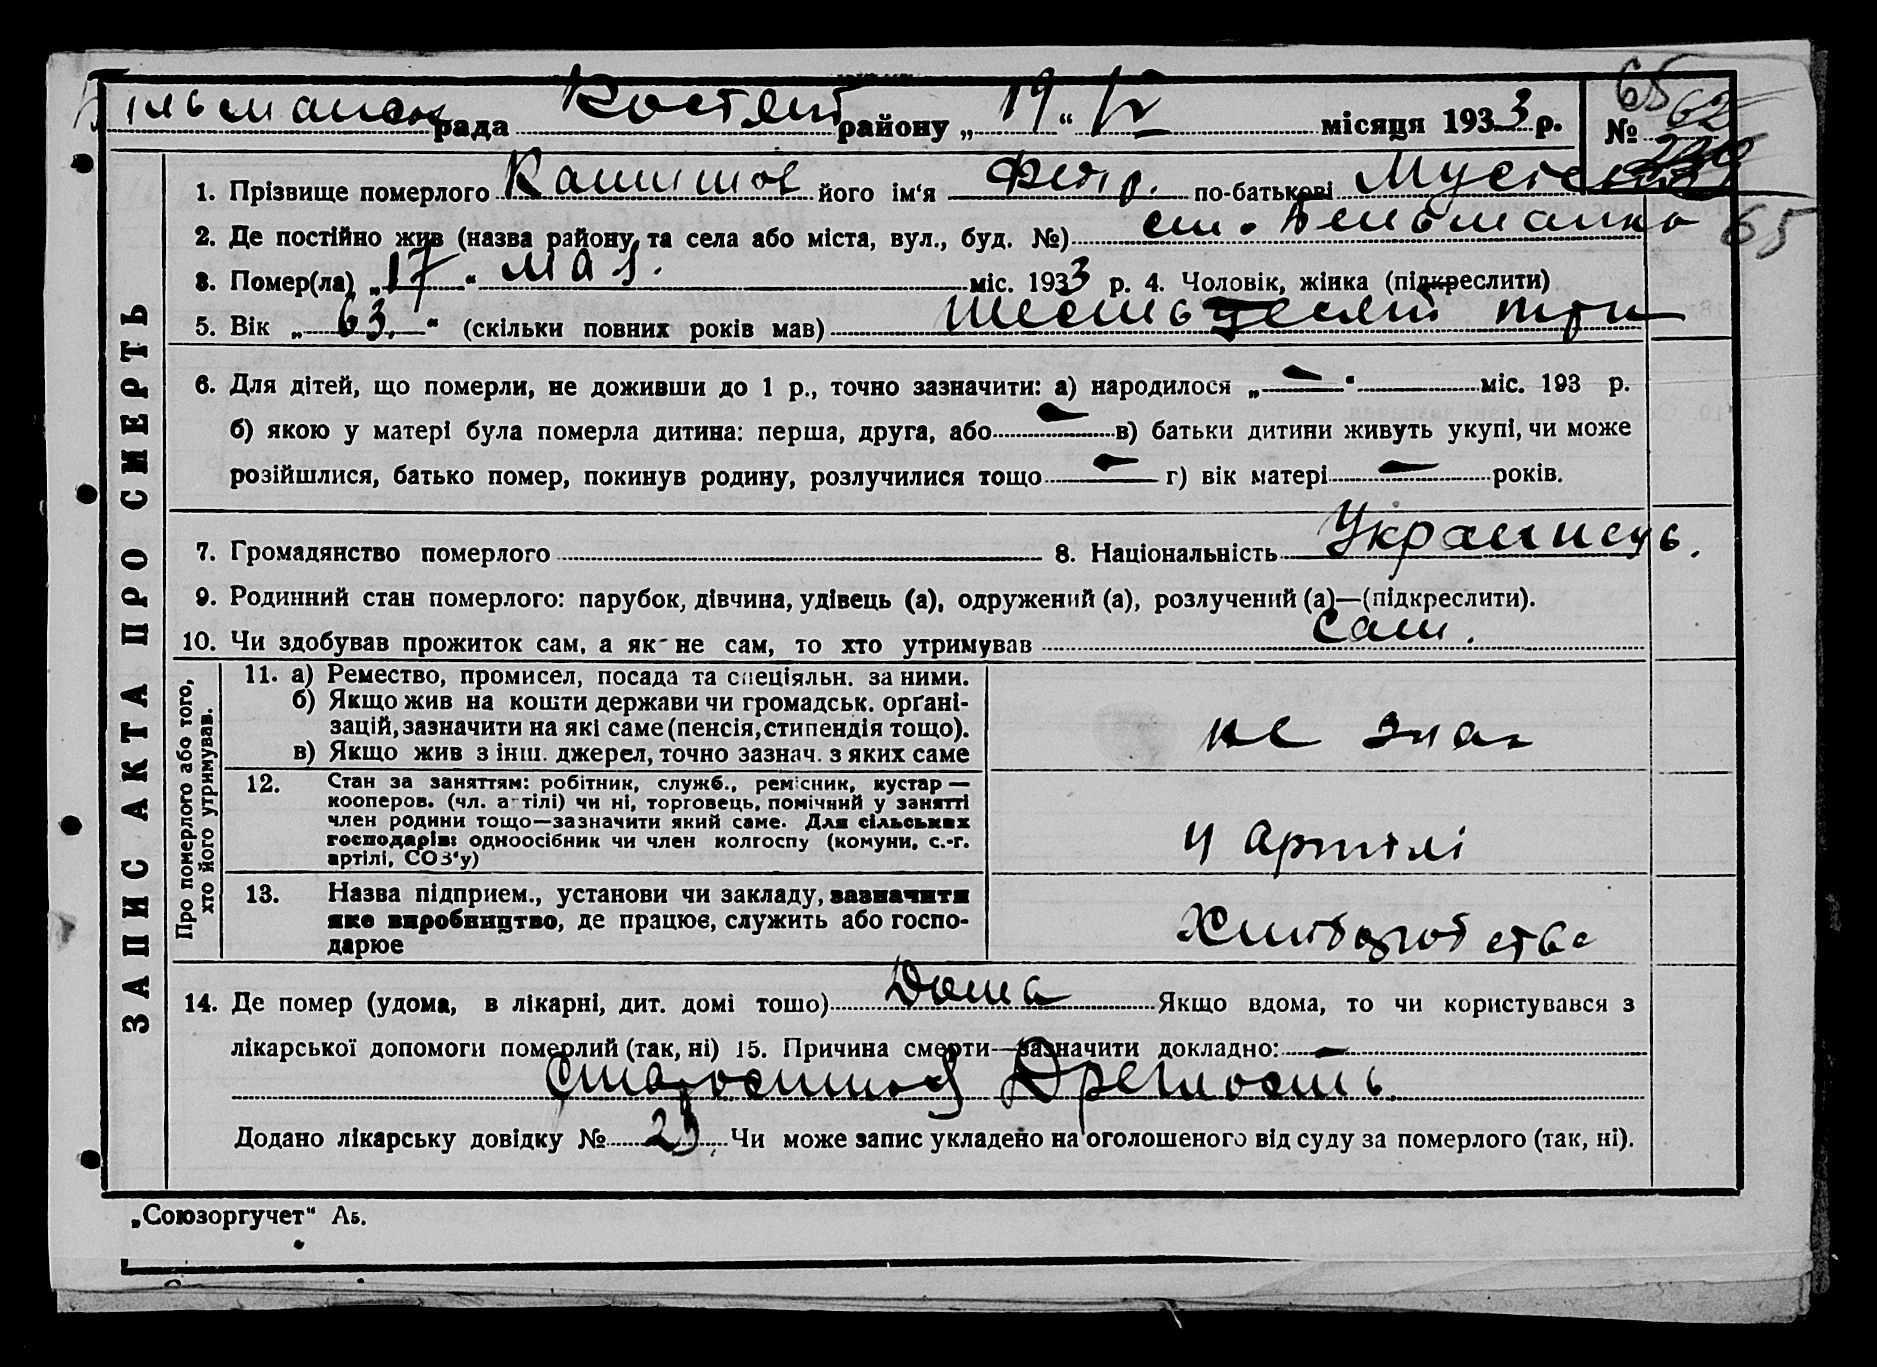 Більманськ рада Костянт району „ 19 “ V місяця 1933 р. № 62
65
1. Прізвище померлого його ім'я Федір. по-батькові
65
2. Де постійно жив (назва району, та села або міста, вул., буд. №) Більманка
3. Помер(ла) „17“ мая. міс. 1933 р. 4. Чоловік, жінка (підкреслити)
5. Вік „ 63. “ (скільки повних років мав) Шестьдесят три
6. Для дітей, що померли, не доживши до 1 р., точно зазначити: а) народилося „ — “ міс. 193 р.
б) якою у матері була померла дитина: перша, друга, або — в) батьки дитини живуть укупі, чи може
розійшлися, батько помер, покинув родину, розлучилися тощо — г) вік матері — років.
7. Громадянство померлого 8. Національність Украинець.
9. Родинний стан померлого: парубок, дівчина, удівець (а), одружений (а), розлучений (а)—(підкреслити).
10. Чи здобував прожиток сам, а як не сам, то хто утримував Сам.
ЗАПИС АКТА ПРО СМЕРТЬ
Про померлого або того,
хто його утримував.
11. а) Ремество, промисел, посада та спеціяльн. за ними.
б) Якщо жив на кошти держави чи громадськ. орґані-
зацій, зазначити на які саме (пенсія, стипендія тощо).
в) Якщо жив з інш. джерел, точно зазнач. з яких саме
не знає
12. Стан за заняттям: робітник, служб., ремісник, кустар —
кооперов. (чл. артілі) чи ні, торговець, помічний у занятті
член родини тощо—зазначити який саме. Для сільських
господарів: одноосібник чи член колгоспу (комуни, с.-г.
артілі, СОЗ'у)
у артілі
13. Назва підприєм., установи чи закладу, зазначити
яке виробництво, де працює, служить або госпо-
дарює
14. Де помер (удома, в лікарні, дит. домі тошо) Дома Якщо вдома, то чи користувався з
лікарської допомоги померлий (так, ні) 15. Причина смерти—зазначити докладно: —
Дреглость.
Додано лікарську довідку № 29 Чи може запис укладено на оголошеного від суду за померлого (так, ні).
„Союзоргучет“ Аб.